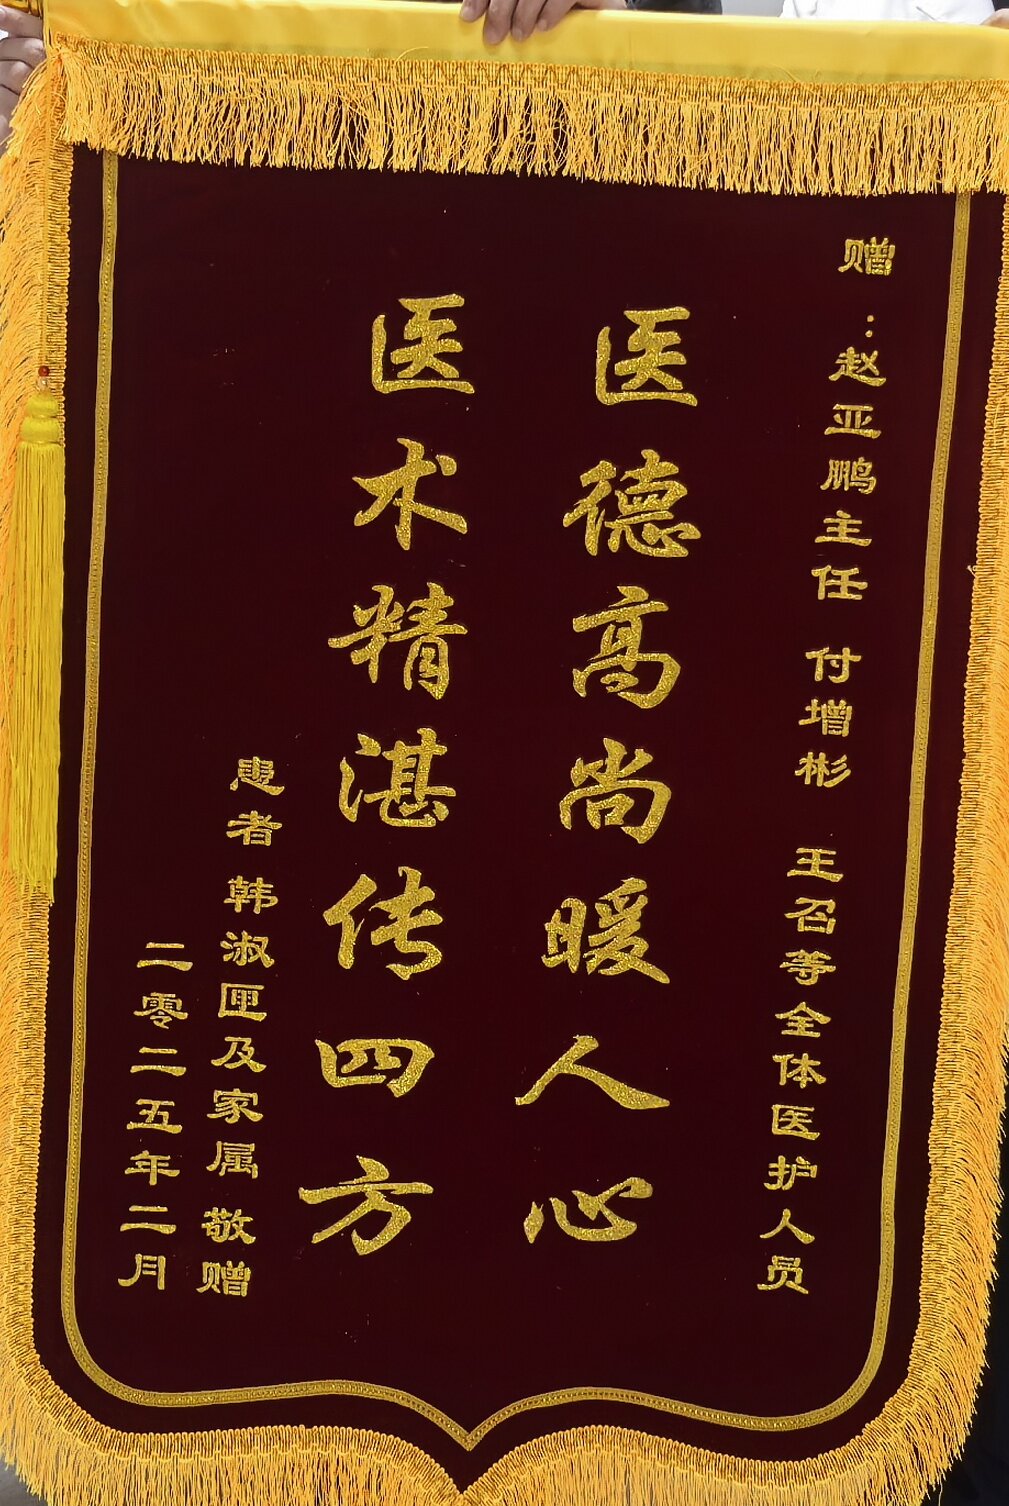 赠：赵亚鹏主任 付增彬 王召等全体医护人员
医德高尚暖人心
医术精湛传四方
患者韩淑匣及家属 敬赠
二零二五年二月